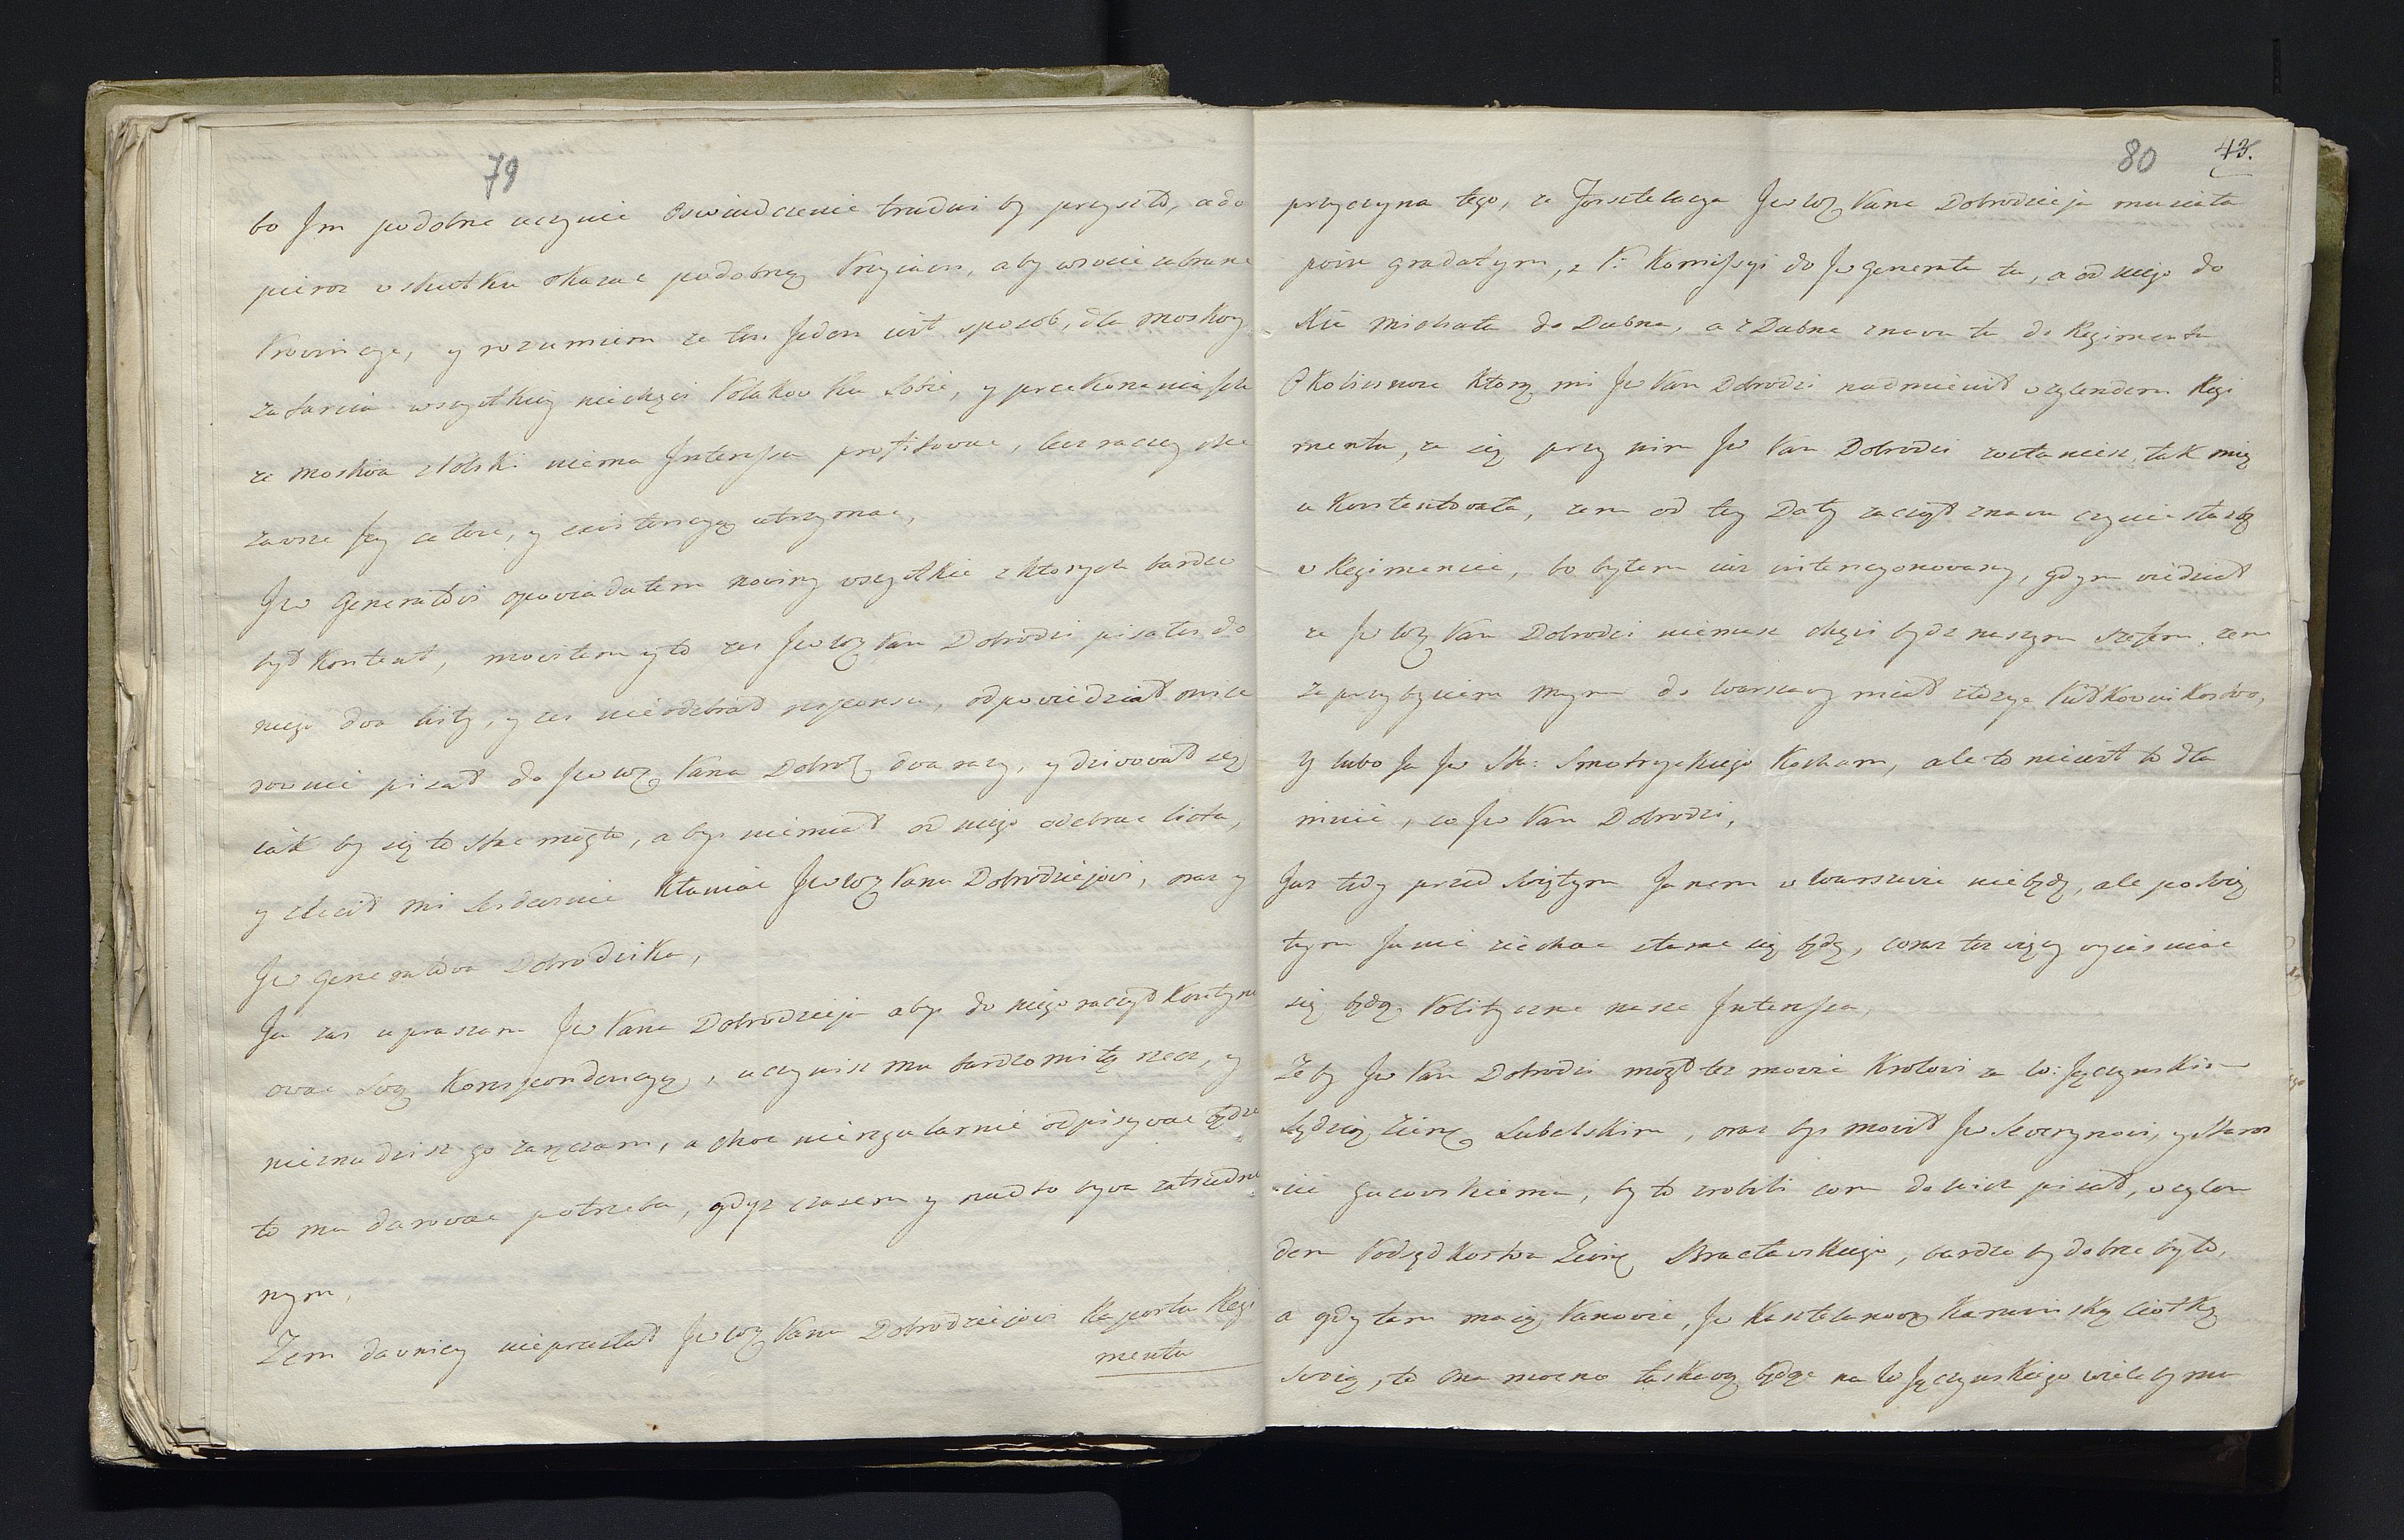 79
bo Jm podobne uczynic Oswiadczenie trudni by przyszło, a do
pieroz w skutku okazac podobnez Przyiazn, aby wrocic zabrane
Prowincye, y rozumiem ze ten Jeden iest sposob, dla Moskwy
zatarcia wszystkiey niechęci Polakow ku Sobie, y przekonania ich
ze Moskwa z Polski niema Interessu profitowac, lecz raczey
zawsze Jey całosc, y exystencyą utrzymac,
Jw Generałowi opowiadałem nowiny wszystkie z ktorych bardzo
był Kontent, mowiłem y to zes Jww Pan Dobrodzi pisałes do
niego dwa listy, y zes nieodebrał responsu, odpowiedział mi ze
rownie pisał do Jww Pana Dobro dwa razy, y dziwował się
iak by się to stac mogło, abys niemiał od niego odebrac listu,
y zlecił mi Serdecznie Kłaniac Jww Panu Dobrodziejowi, oraz y
Jw Generałowa Dobrodzika,
Ja zas upraszam Jw Pana Dobrodzieja abys do niego raczył Kontynu
owac swą Korrespondencyą, uczynisz mu bardzo miłą rzecz, y
nieznudzisz go zaręczam, a choc nieregularnie odpisywac będzie
to mu darowac potrzeba, gdyz czasem y nadto bywa zatrudnio
nym,
Zem dawniey nieprzesłał Jww Panu Dobrodziejowi Raportu Regi
mentu
80 43.
przyczyna tego, ze Jnsztelacya Jww Pana Dobrodzieja musiała
poisc gradatym, z P: Komissyi do Jw Generała tu, a od niego do
Xcia Michała do Dubna, a z Dubna znowu tu do Regimentu
Okolicznosc ktorą mi Jw Pan Dobrodzi nadmienił względem Regi
mentu, ze się przy nim Jw Pan Dobrodzi zostaniesz, tak mię
u Kontentowała, zem od tey Daty zaczął znowu czynic słuzbę
w Regimencie, bo byłem iuz intencyonowany, gdym wiedział
ze Jww Pan Dobrodzi niemasz chęci bydz naszym Szefem, zem
za przybyciem mym do Warszawy miał złozyc Pułkownikostwo,
y lubo Ja Jw Sta: Smotryckiego Kocham, ale to nieiest to dla
mnie, co Jw Pan Dobrodzi,
Juz tedy przed Swiętym Janem w Warszawie niebędę, ale po Swię
tym Janie ziechac starac się będę, coraz tez więcy wyiasniac
się będą Polityczne nasze Interessa,
Zeby Jw Pan Dobrodzi mogł tez mowic Krolowi za W: Jęczynskim
Sędzią Ziem Lubelskim, oraz bys mowił Jw Seweryno[w]i, y Staros
cie Gucowskiemu, by to zrobili com do nich pisał, wzglę
dem Podsędkostwa Ziem Bracławskiego, bardzo by dobrze było,
a gdy tam macie Panowie, Jw Kasztelanową Kaminską ciotkę
swoią, to ona mocno łaskawą będąc na W Jęczynskiego wiele by mu